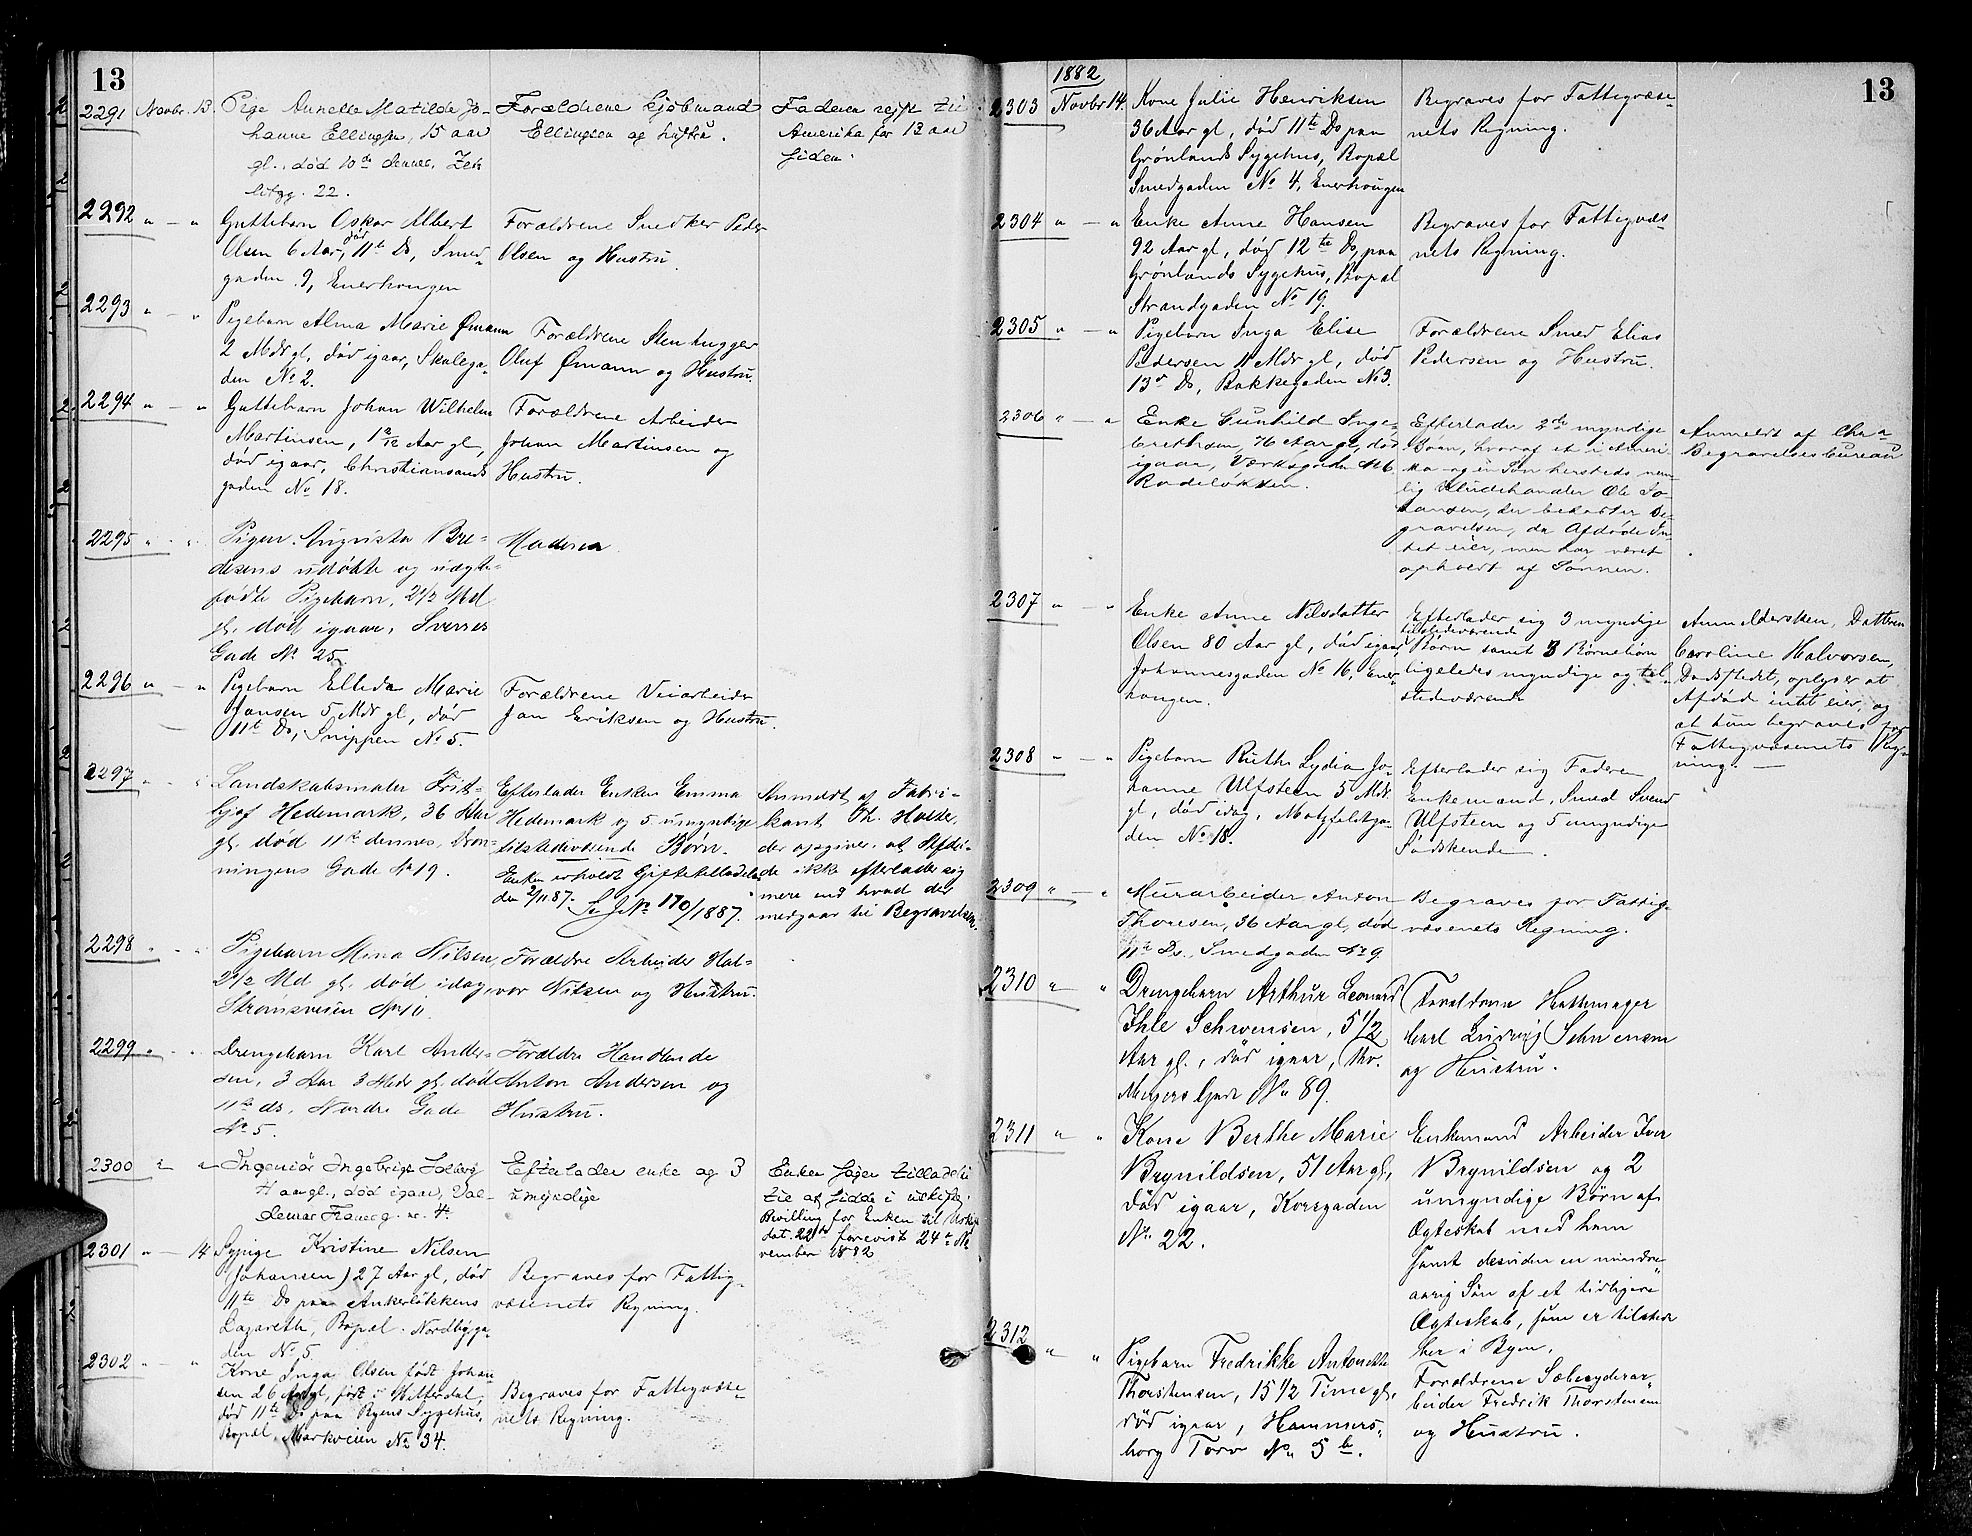 13
2291 Novbr. 13. Pige Annette Matilde Jo-
hanne Ellingsen, 15 aar
gl., død 10de dennes, Zet-
litzg. 22.
Forældrene Kjøbmand
Ellingsen og hustru.
Faderen rejst til
Amerika for 12 aar
siden.
2292 " — " Guttebarn Oskar Albert
Olsen 6 Aar, død 11te Ds, Smed-
gaden 9, Enerhougen
Forældrene Snedker Peder
Olsen og Hustru.
2293 " — " Pigebarn Alma Marie Ømann
2 Mdr gl, død igaar, Skolega-
den No 2.
Forældrene Stenhugger
Oluf Ømann og Hustru.
2294 " — " Guttebarn Johan Wilhelm
Martinsen, 1 2/12 Aar gl,
død igaar, Christiansands
gaden No 18.
Forældrene Arbeider
Johan Martinsen og
Hustru.
2295 " " Pigen Augusta Bre-
desens udøbte og uægte-
fødte Pigebarn, 2 1/2 Md
gl. død igaar, Sverres
Gade No 25.
Moderen
2296 " — " Pigebarn Ellida Marie
Jansen 5 Mdr gl, død
11te Ds, Snippen No 5.
Forældrene Veiarbeider
Jan Eriksen og Hustru.
2297 " " Landskabsmaler Frit-
hjof Hedemark, 36 Aar
gl. død 11te dennes, Dron-
ningens Gade No 19.
Efterlader Enken Emma
Hedemark og 5 umyndige
tilstedeværende Børn.
Enken erholdt Giftetilladelse
den 2/11 87. Se JNo 170/1887.
Anmeldt af Fabri-
kant Th. Holte,
der opgiver, at Afdø-
de ikke efterlader sig
mere end hvad der
medgaar til Begravelsen.
2298 " " Pigebarn Mina Nilsen,
2 1/2 Md gl. død idag,
Strømsveien No 10.
Forældre Arbeider Hal-
vor Nilsen og Hustru.
2299 " " Drengebarn Karl Ander-
sen, 3 Aar 3 Mdr gl. død
11te ds. Nordre Gade
No 5.
Forældre Handlende
Anton Andersen og
Hustru.
2300 " " Ingeniør Ingebrigt Soberg
aar gl., død igaar, Val-
demar Thranes g. nr. 4.
Efterlader enke og 3
umyndige
Enken søger tilladelse
til at sidde i uskifte.
Bevilling for Enken til Uskifte
dat. 22de forevist 24de No-
vember 1882
2301 " — 14 Sypige Kristine Nilsen
(Johansen) 27 Aar gl, død
11te Ds paa Ankerløkkens
Lazareth, Bopæl Nordbyga-
den No 5
Begraves for Fattig-
væsenets Regning.
2302 " — " Kone Inga Olsen født Johan-
sen 26 Aar gl, født i Hitterdal,
død 11te Ds paa Byens Sygehus,
Bopæl, Markveien No 34.
Begraves for Fattigvæse-
nets Regning.
13
1882
2303 Novbr 14. Kone Julie Henriksen
36 Aar gl, død 11te Ds paa
Grønlands Sygehus, Bopæl
Smedgaden No 4, Enerhougen
Begraves for Fattigvæse-
nets Regning.
2304 " — " Enke Anne Hansen
92 Aar gl, død 12te Ds, paa
Grønlands Sygehus, Bopæl
Strandgaden No 19.
Begraves for Fattigvæs-
nets Regning.
2305 " — " Pigebarn Inga Elise
Pedersen 11 Mdr gl, død
13de Ds, Bakkegaden No 3.
Forældrene Smed Elias
Pedersen og Hustru.
2306 " — " Enke Gunhild Inge-
brethsen, 76 Aar gl, død
igaar, Værksgaden No 6
Rodeløkken.
Efterlader 2de myndige
Børn, hvoraf et i Ameri-
ka og en Søn hersteds nem-
lig Kludehandler Ole Jo-
hansen, der bekoster Be-
gravelsen, da Afdøde In-
tet eier, men har været
opholdt af Sønnen.
Anmeldt af Chra
Begravelsesbureau
2307 " — " Enke Anne Nilsdatter
Olsen 80 Aar gl, død igaar,
Johannesgaden No 16, Ener-
hougen.
Efterlader sig 3 myndige
tilstedeværende
Børn samt 3 Børnebørn
ligeledes myndige og til-
stedeværende
Anmeldersken, Datteren
Caroline Halvorsen,
Dødsstedet, oplyser at
Afdød intet eier, og
at hun begraves for
Fattigvæsenets Reg-
ning. —
2308 " — " Pigebarn Ruth Lydia Jo-
hanne Ulfsteen 5 Mdr
gl, død idag, Motzfeldtga-
den No 18.
Efterlader sig Faderen
Enkemand, Smed Svend
Ulfsteen og 5 umyndige
Sødskende.
2309 " — " Murarbeider Anton
Thoresen, 36 Aar gl, død
11te Ds. Smedgaden No 9
Begraves for Fattig-
væsenets Regning.
2310 " " Drengebarn Arthur Leonard
Ihle Schwensen, 5 1/2
Aar gl., død igaar, Tho.
Meyers Gade No 89.
Forældrene Hattemager
Carl Ludvig Schwensen
og Hustru.
2311 " " Kone Berthe Marie
Brynildsen, 51 Aar gl,
død igaar, Korsgaden
No 22.
Enkemand Arbeider Iver
Brynildsen og 2
umyndige Børn af
Ægteskab med ham
samt desuden en mindre-
aarig Søn af et tidligere
Ægteskab, som er tilstede
her i Byen.
2312 " " Pigebarn Fredrikke Antonette
Thorstensen, 15 1/2 Time gl,
død igaar, Hammers-
borg Torv No 5 b.
Forældrene Sæbesyderar-
beider Fredrik Thorstensen
og Hustru.